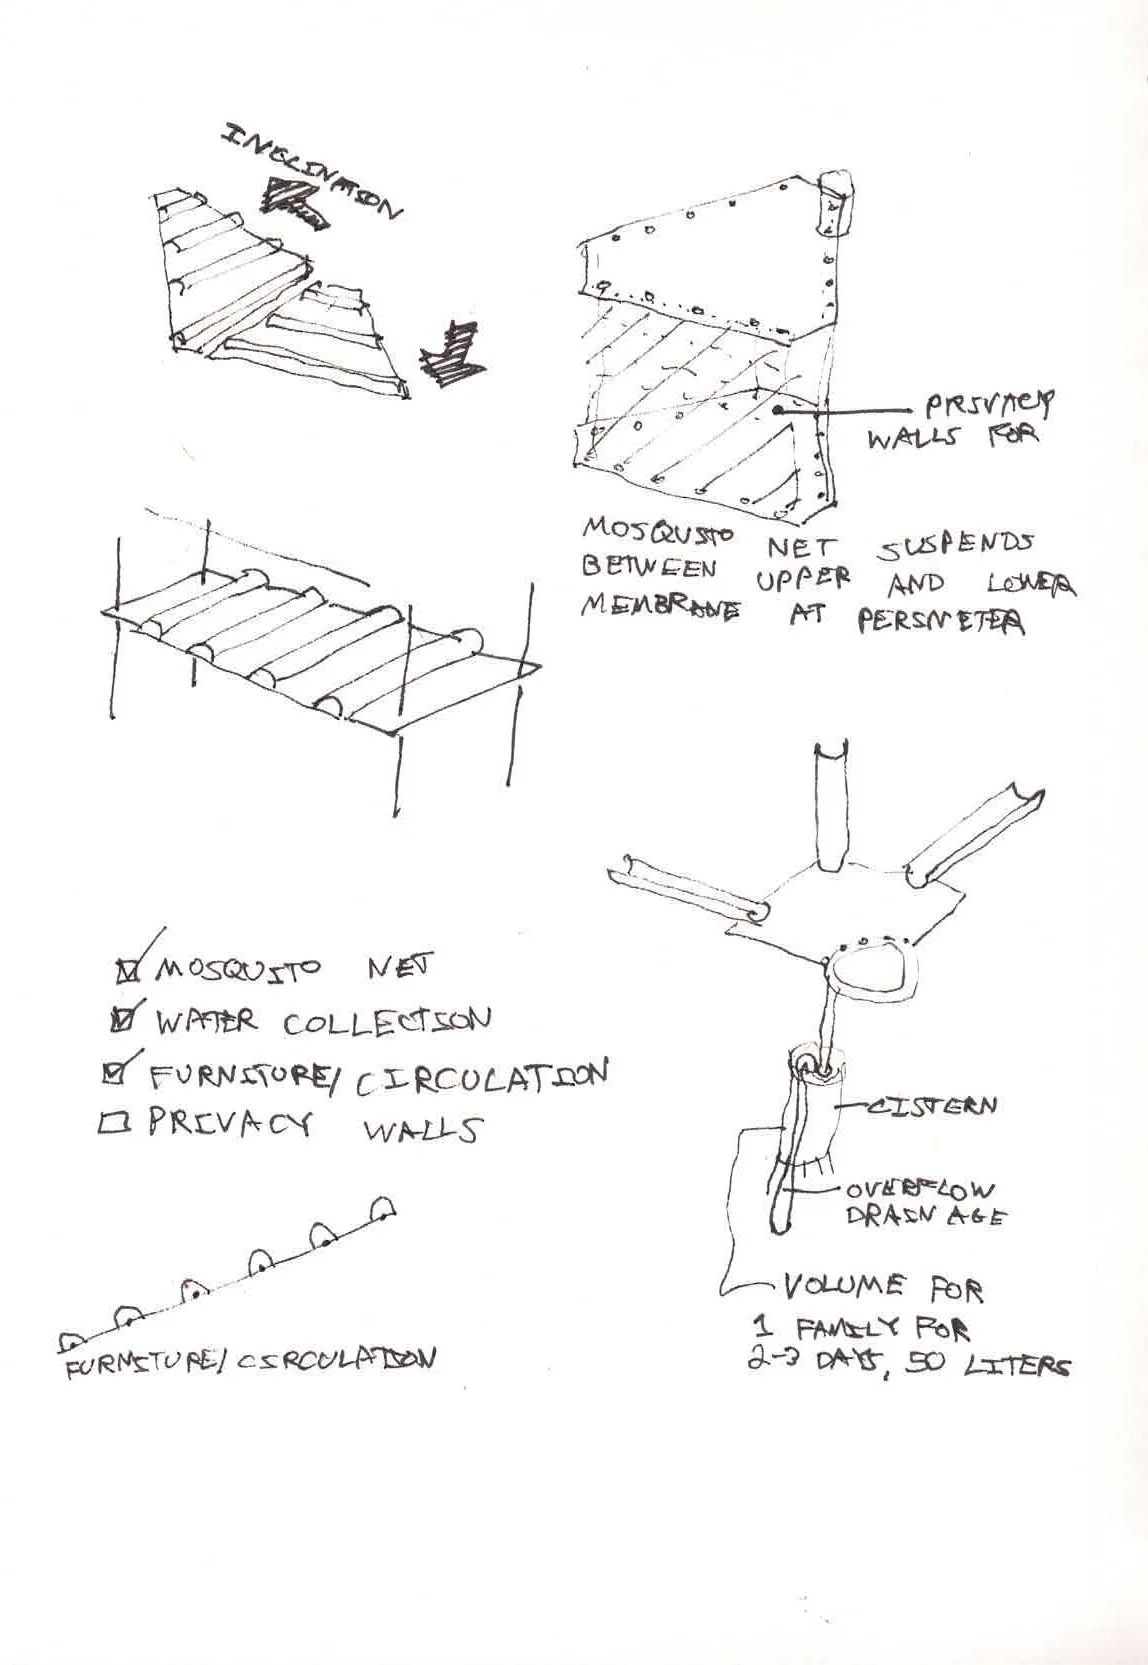 INCLINATION
PRIVACY
WALLS FOR
MOSQUITO NET SUSPENDS
BETWEEN UPPER AND LOWER
MEMBRANE AT PERIMETER
MOSQUITO NET
WATER COLLECTION
FURNITURE/CIRCULATION
PRIVACY WALLS
CISTERN
OVERFLOW
DRAINAGE
VOLUME FOR
1 FAMILY FOR
2-3 DAYS, 50 LITERS
FURNITURE/CIRCULATION